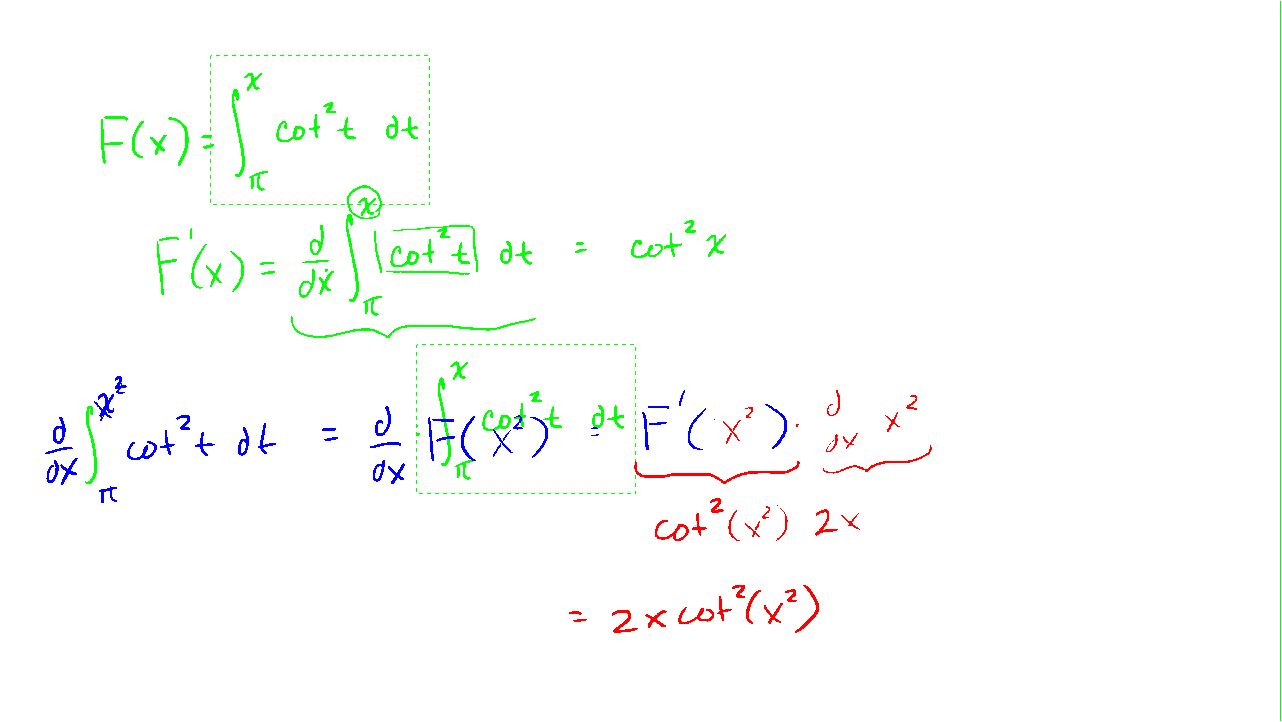 F(x) = ∫_π^x cot² t dt
F'(x) = d/dx ∫_π^x cot² t dt = cot² x
d/dx ∫_π^x² cot² t dt = d/dx F(x²) = F'(x²) · d/dx x²
∫_π^x cot² t dt
cot²(x²) 2x
= 2x cot²(x²)